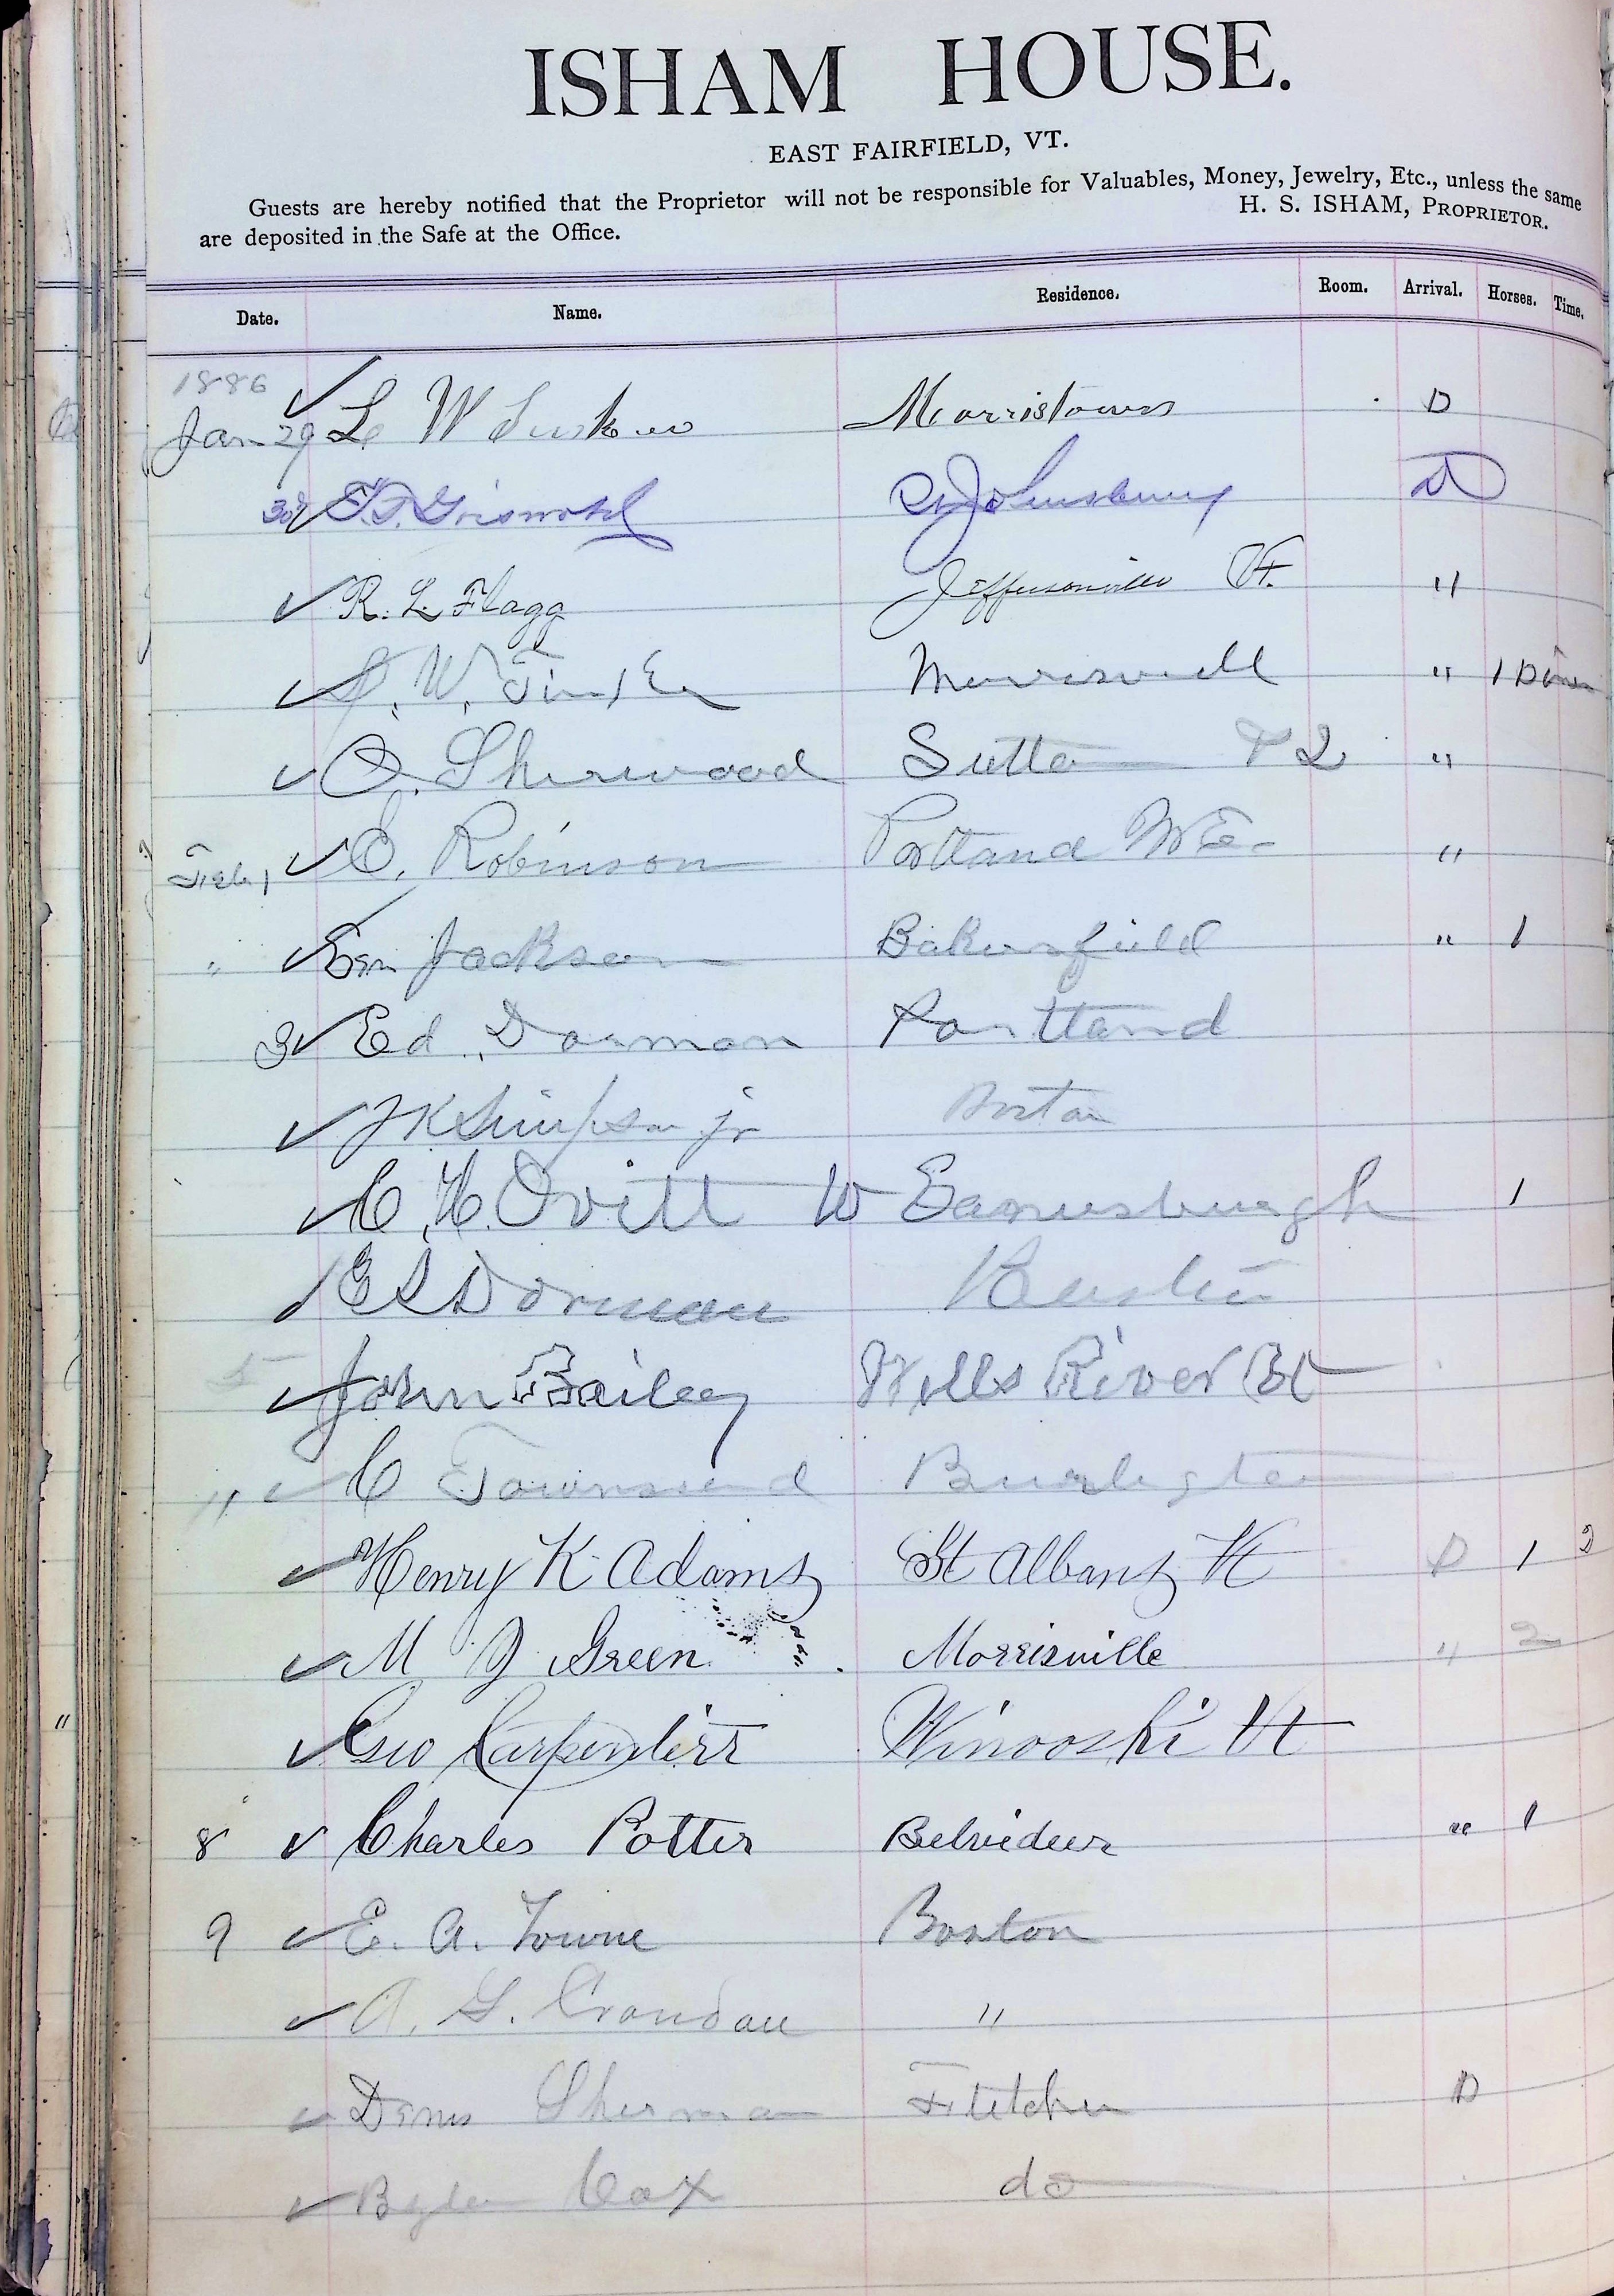 ISHAM HOUSE.
EAST FAIRFIELD, VT.
Guests are hereby notified that the Proprietor will not be responsible for Valuables, Money, Jewelry, Etc., unless the same
are deposited in the Safe at the Office. H. S. ISHAM, PROPRIETOR.
Date. Name. Residence. Room. Arrival. Horses. Time.
1886
Jan 29 ✓ L W Morristown D
30 ✓ F. T. Griswold St Johnsbury D
✓ R. L. Flagg Jeffersonville Vt. "
✓ W. Morrisvill " 1
✓ O. Sherwood Sutton P Q "
Feb 1 ✓ C. Robinson Portland ME- "
" ✓ Jackson Bakersfield " 1
3 ✓ Ed. Dorman Portland
✓ J K Simpson jr Boston
✓ C. H. Ovitt W Eanusburgh 1
✓ E S Dorman
5 ✓ John Bailey Wells River Vt
" ✓ C Townsend Burlington
✓ Henry K Adams St Albans Vt D 1 2
✓ M J Green Morrisville " 2
✓ Geo Carpenter Winooski Vt
8 ✓ Charles Potter Belvideer " 1
9 ✓ E. A. Towne Boston
✓ A. G. Crandall "
✓ Sherman Fletcher D
✓ Cox do